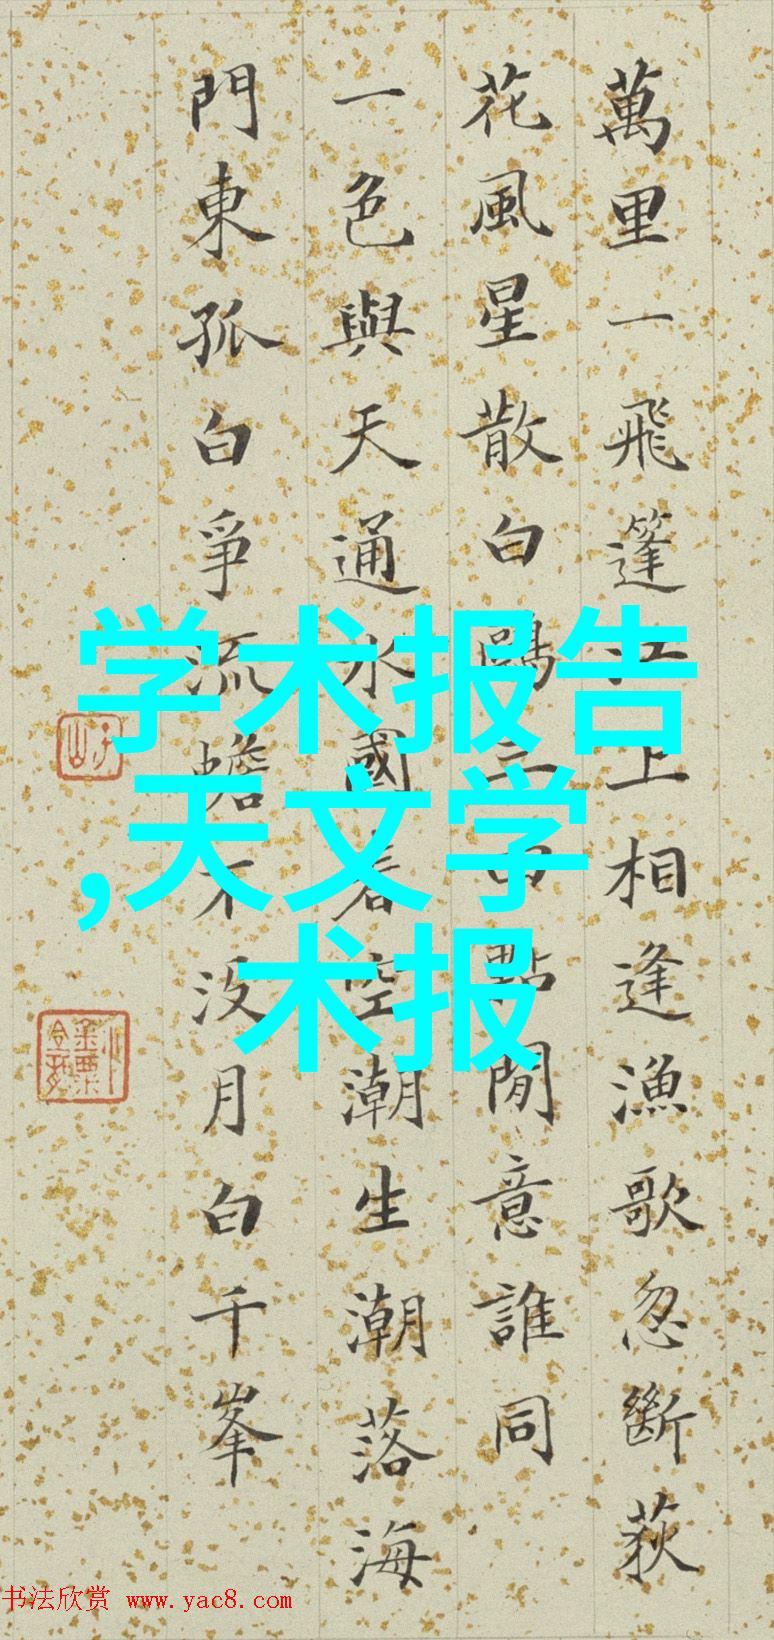 萬里一飛篷江上相逢漁歌忽斷荻
花風星散白鷗三四點閒意誰同
一色與天通水國春空潮生潮落海
門東孤白爭流蟾不没月白千峯
学术报告
,天文学
术报
书法欣赏 www.yac8.com